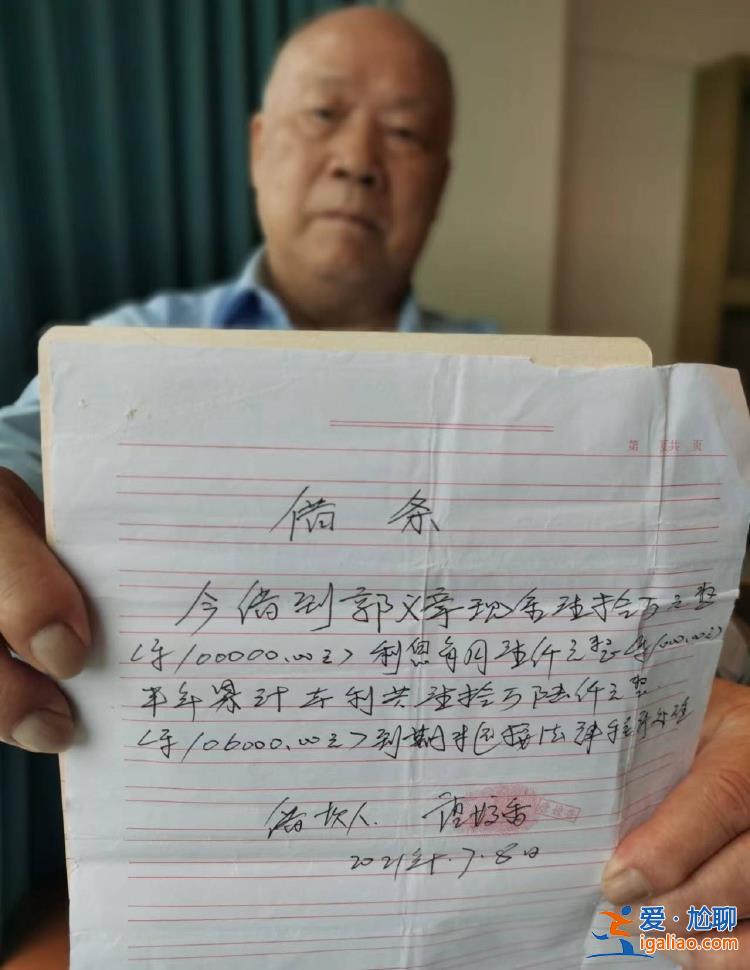 第 页共 页
借 条
今借到郭义章现金壹拾万元整
(¥100000.00元)利息每月壹仟元整(¥1000.00元)
半年累计本利共壹拾万陆仟元整
(¥106000.00元)到期
借款人
2021年.7.8日
爱·尬聊
igaliao.com